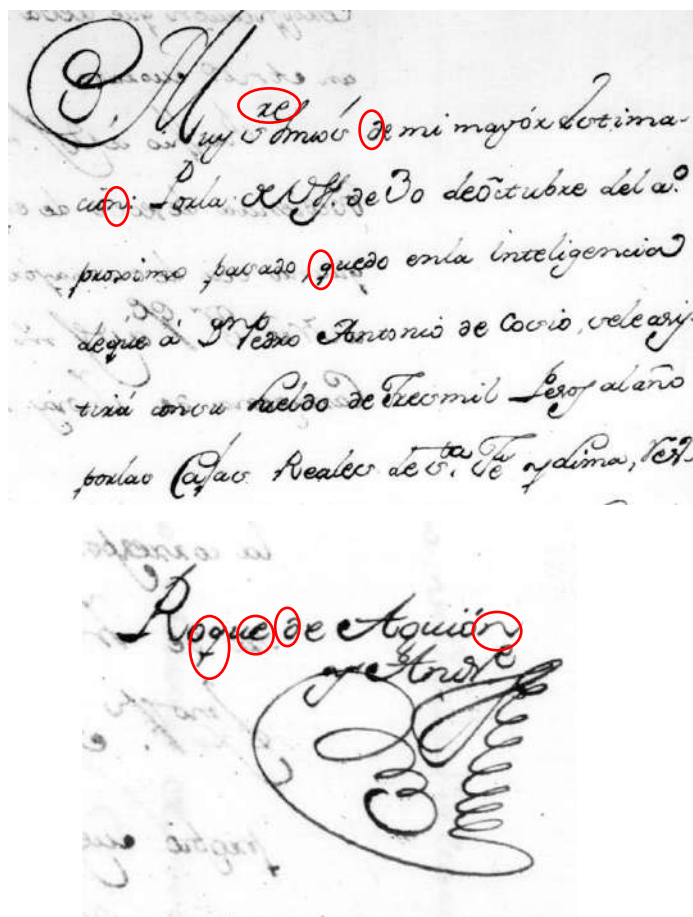 Muy s.or mio de mi mayór Estima-
ción: Por la de Vm. de 30 de Octubre del a.º
proximo pasado, quedo en la inteligencia
de que á D.n Pedro Antonio de Cosio, se le asis
tirá con su sueldo de Tres mil Pesos al año
por las Casas Reales de S.ta Fe y Lima,
Roque de Aguión